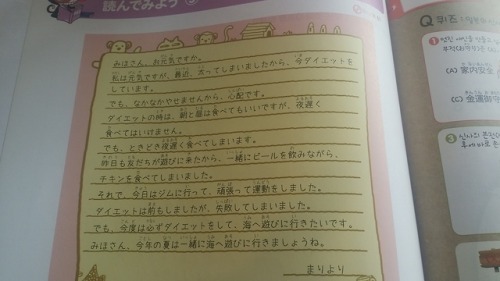 読んでみよう
みほさん、お元気ですか。
私は元気ですが、最近、太ってしまいましたから、今ダイエットを
しています。
でも、なかなかやせませんから、心配です。
ダイエットの時は、朝と昼は食べてもいいですが、夜遅く
食べてはいけません。
でも、ときどき夜遅く食べてしまいます。
昨日も友だちが遊びに来たから、一緒にビールを飲みながら、
チキンを食べてしまいました。
それで、今日はジムに行って、頑張って運動をしました。
ダイエットは前もしましたが、失敗してしまいました。
でも、今度は必ずダイエットをして、海へ遊びに行きたいです。
みほさん、今年の夏は一緒に海へ遊びに行きましょうね。
まりより
Q 퀴즈
1
(A) 室内安全
(C) 金運御守
3